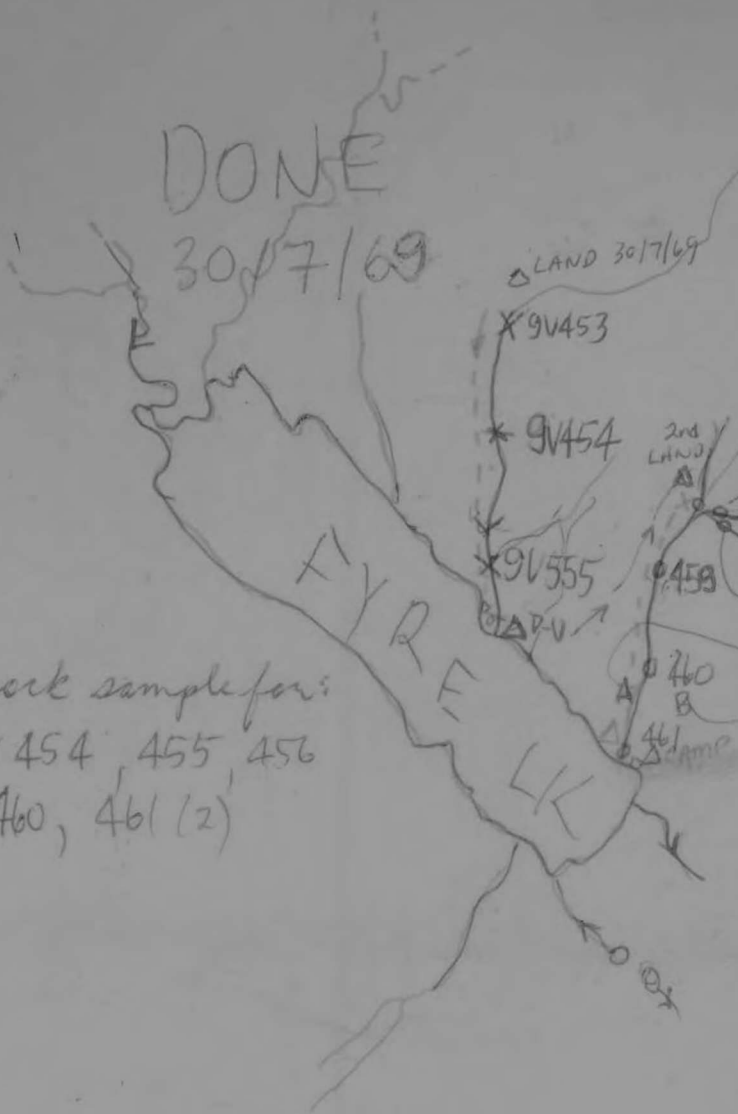 DONE
30/7/69
LAND 30/7/69
9V453
9V454
2nd
LAND
9V555
459
P-U
FYRE LK
460
B
461
CAMP
ock sample for:
454, 455, 456
460, 461 (2)